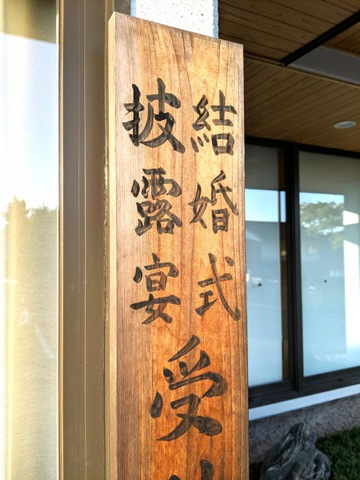 結婚式
披露宴
受